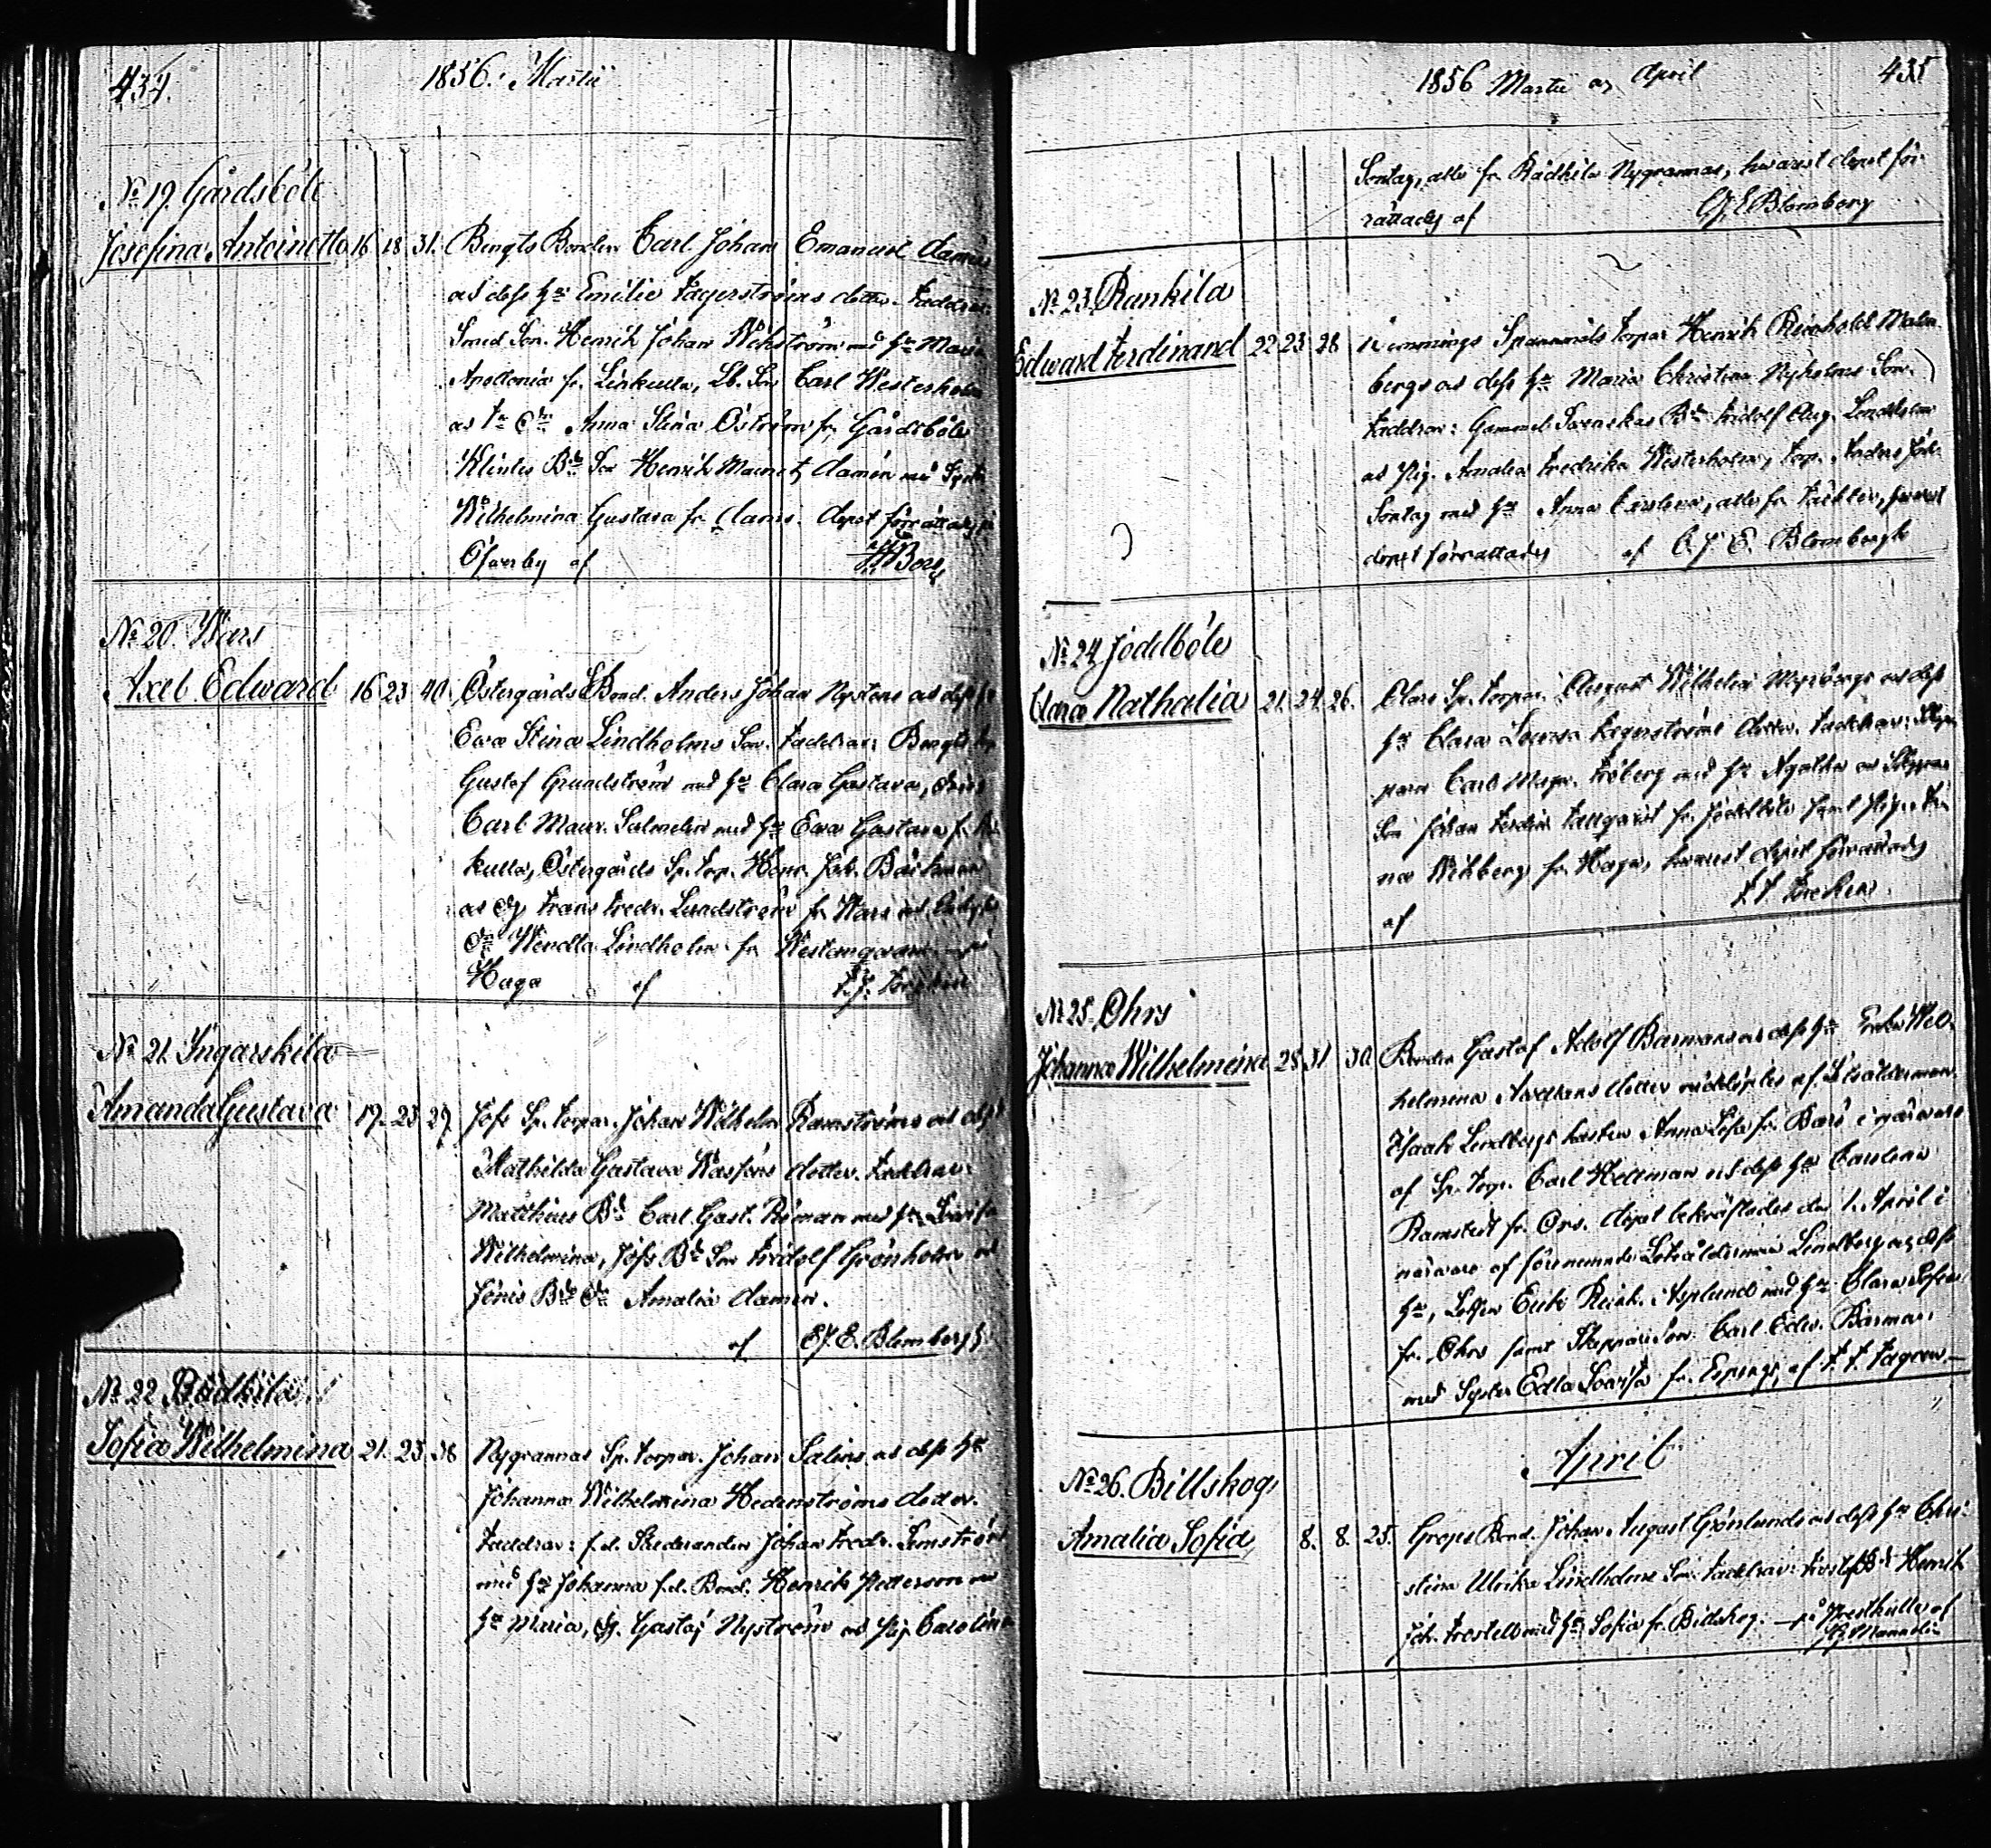 434.
1856. Martii
No 19. Gårdsböle
Josefina Antoinette 16. 18. 31. Bengts Bonden Carl Johan Emanuel Damens
och dess hu Emilie Fagerströms dotter. Faddrar:
Smed Son. Henrik Johan Wikström med hu Maria
Apollonia fr. Linkulla, Lb. Son Carl Westerholm
och Anna Stina Öström fr. Gårdsböle
Klinkis Bd Son Henrik Mauritz Damén med Syster
Wilhelmina Gustava fr. Dams. Dopet förrättades på
Öfverby af
No 20. Wars
Axel Edward 16. 23. 40. Östergårds Bond. Anders Johan Nystens och dess hu
Ewa Stina Lindholms Son. Faddrar: Bengts
Gustaf Grundström med hu Clara Gustava,
Carl Maur. Salmelin med hu Ewa Gustava fr.
kulla, Östergårds Sp. Torp. Henr. Joh. Bäckman
och Dg Frans Fredr. Lundström fr. Wars
Wendla Lindholm fr. Westomgård
Haga af
No 21. Ingarskila
Amanda Gustava 19. 23. 29. Jofs Sp. Torpar. Johan Wilhelm Ramströms och dess
Mathilda Gustava Wasséns dotter. Faddrar:
Matthius Bd Carl Gust. Riman med hu Lovisa
Wilhelmina, Jofs Bd Son Fridolf Grönholm och
Jönis Bd Dr Amalia Damen.
af C. J. E. Blombergh.
No 22 Rådkila
Sofia Wilhelmina 21. 23. 38 Nygrannas Sp. Torpar. Johan Salins och dess hu
Johanna Wilhelmina Hedenströms dotter.
Faddrar: f.d. Johan Fredr.
med hu Johanna f.d. Bond. Henrik Petterson med
hu Maria, Dg. Gustaf Nyström och Pig. Carolina
1856 Martii och April
435
Sontag, alla fr. Rådkila Nygrannas, hwarest dopet för-
rättades af C. J. E. Blomberg
No 23. Rankila
Edward Ferdinand 22. 23. 28 Hemmings Spanmåls Torpar Henrik Reinhold Malm-
bergs och dess hu Maria Christina Nyholms Son.
Faddrar: Gammel Svenskas Bd Fridolf Aug. Lindholm
och Pig. Amalia Fredrika Westerholm, Torp. Anders Joh.
Sontag med hu Anna Cristina, alla fr. Täckter, hwarest
dopet förrättades af C. J. E. Blombergh
No 24. Joddböle
Clara Nathalia 21. 24. 26. Clars Sp. Torpar. August Wilhelm Nybergs och dess
hu Clara Lovisa Fagerströms dotter. Faddrar: Skep-
paren Carl Magn. Fröberg med hu Agatha och Skeppar
Son Johan Ferdin. Tallqvist fr. Joddböle samt Pig.
Wikberg fr. Haga, hwarest dopet förrättades
af
No 25. Ohrs
Johanna Wilhelmina 28. 31. 30. Bonden Gustaf Adolf Barmans och dess hu Erika Wil-
helmina Awellans dotter nöddöptes af Lotsålderman
Isaak Lindbergs hustru Anna Lisa fr. Barö i närvaro
af Sp. Torp. Carl Hellman och dess hu Carolina
Ramstedt fr. Ors. Dopet bekräftades den 1. April i
närvaro af förenämnde Lotsålderman Lindberg och dess
hu, Lotsen Erik Reinh. Nylund med hu Clara Sofia
fr. Ohrs samt Skeppar Son. Carl Edv. Barman,
med Syster Edla Lovisa fr. Espings, af
April
No 26. Billskog
Amalia Sofia 8. 8. 25. Greps Bond. Johan August Grönlunds och dess hu Chri-
stina Ulrika Lindholms Son. Faddrar: Frostells Bd Henrik
Joh. Frostell med hu Sofia fr. Billskog. — på Prestkulla af